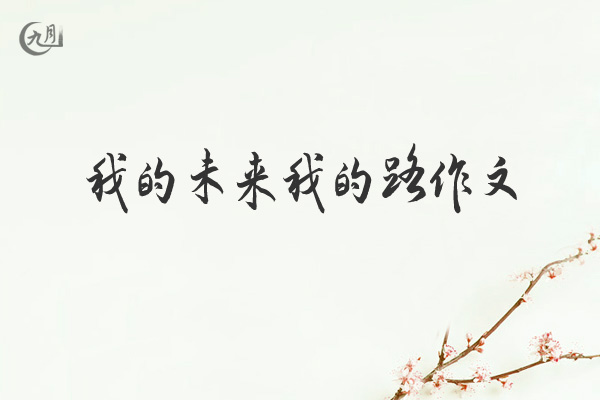 九月
我的未来我的路作文